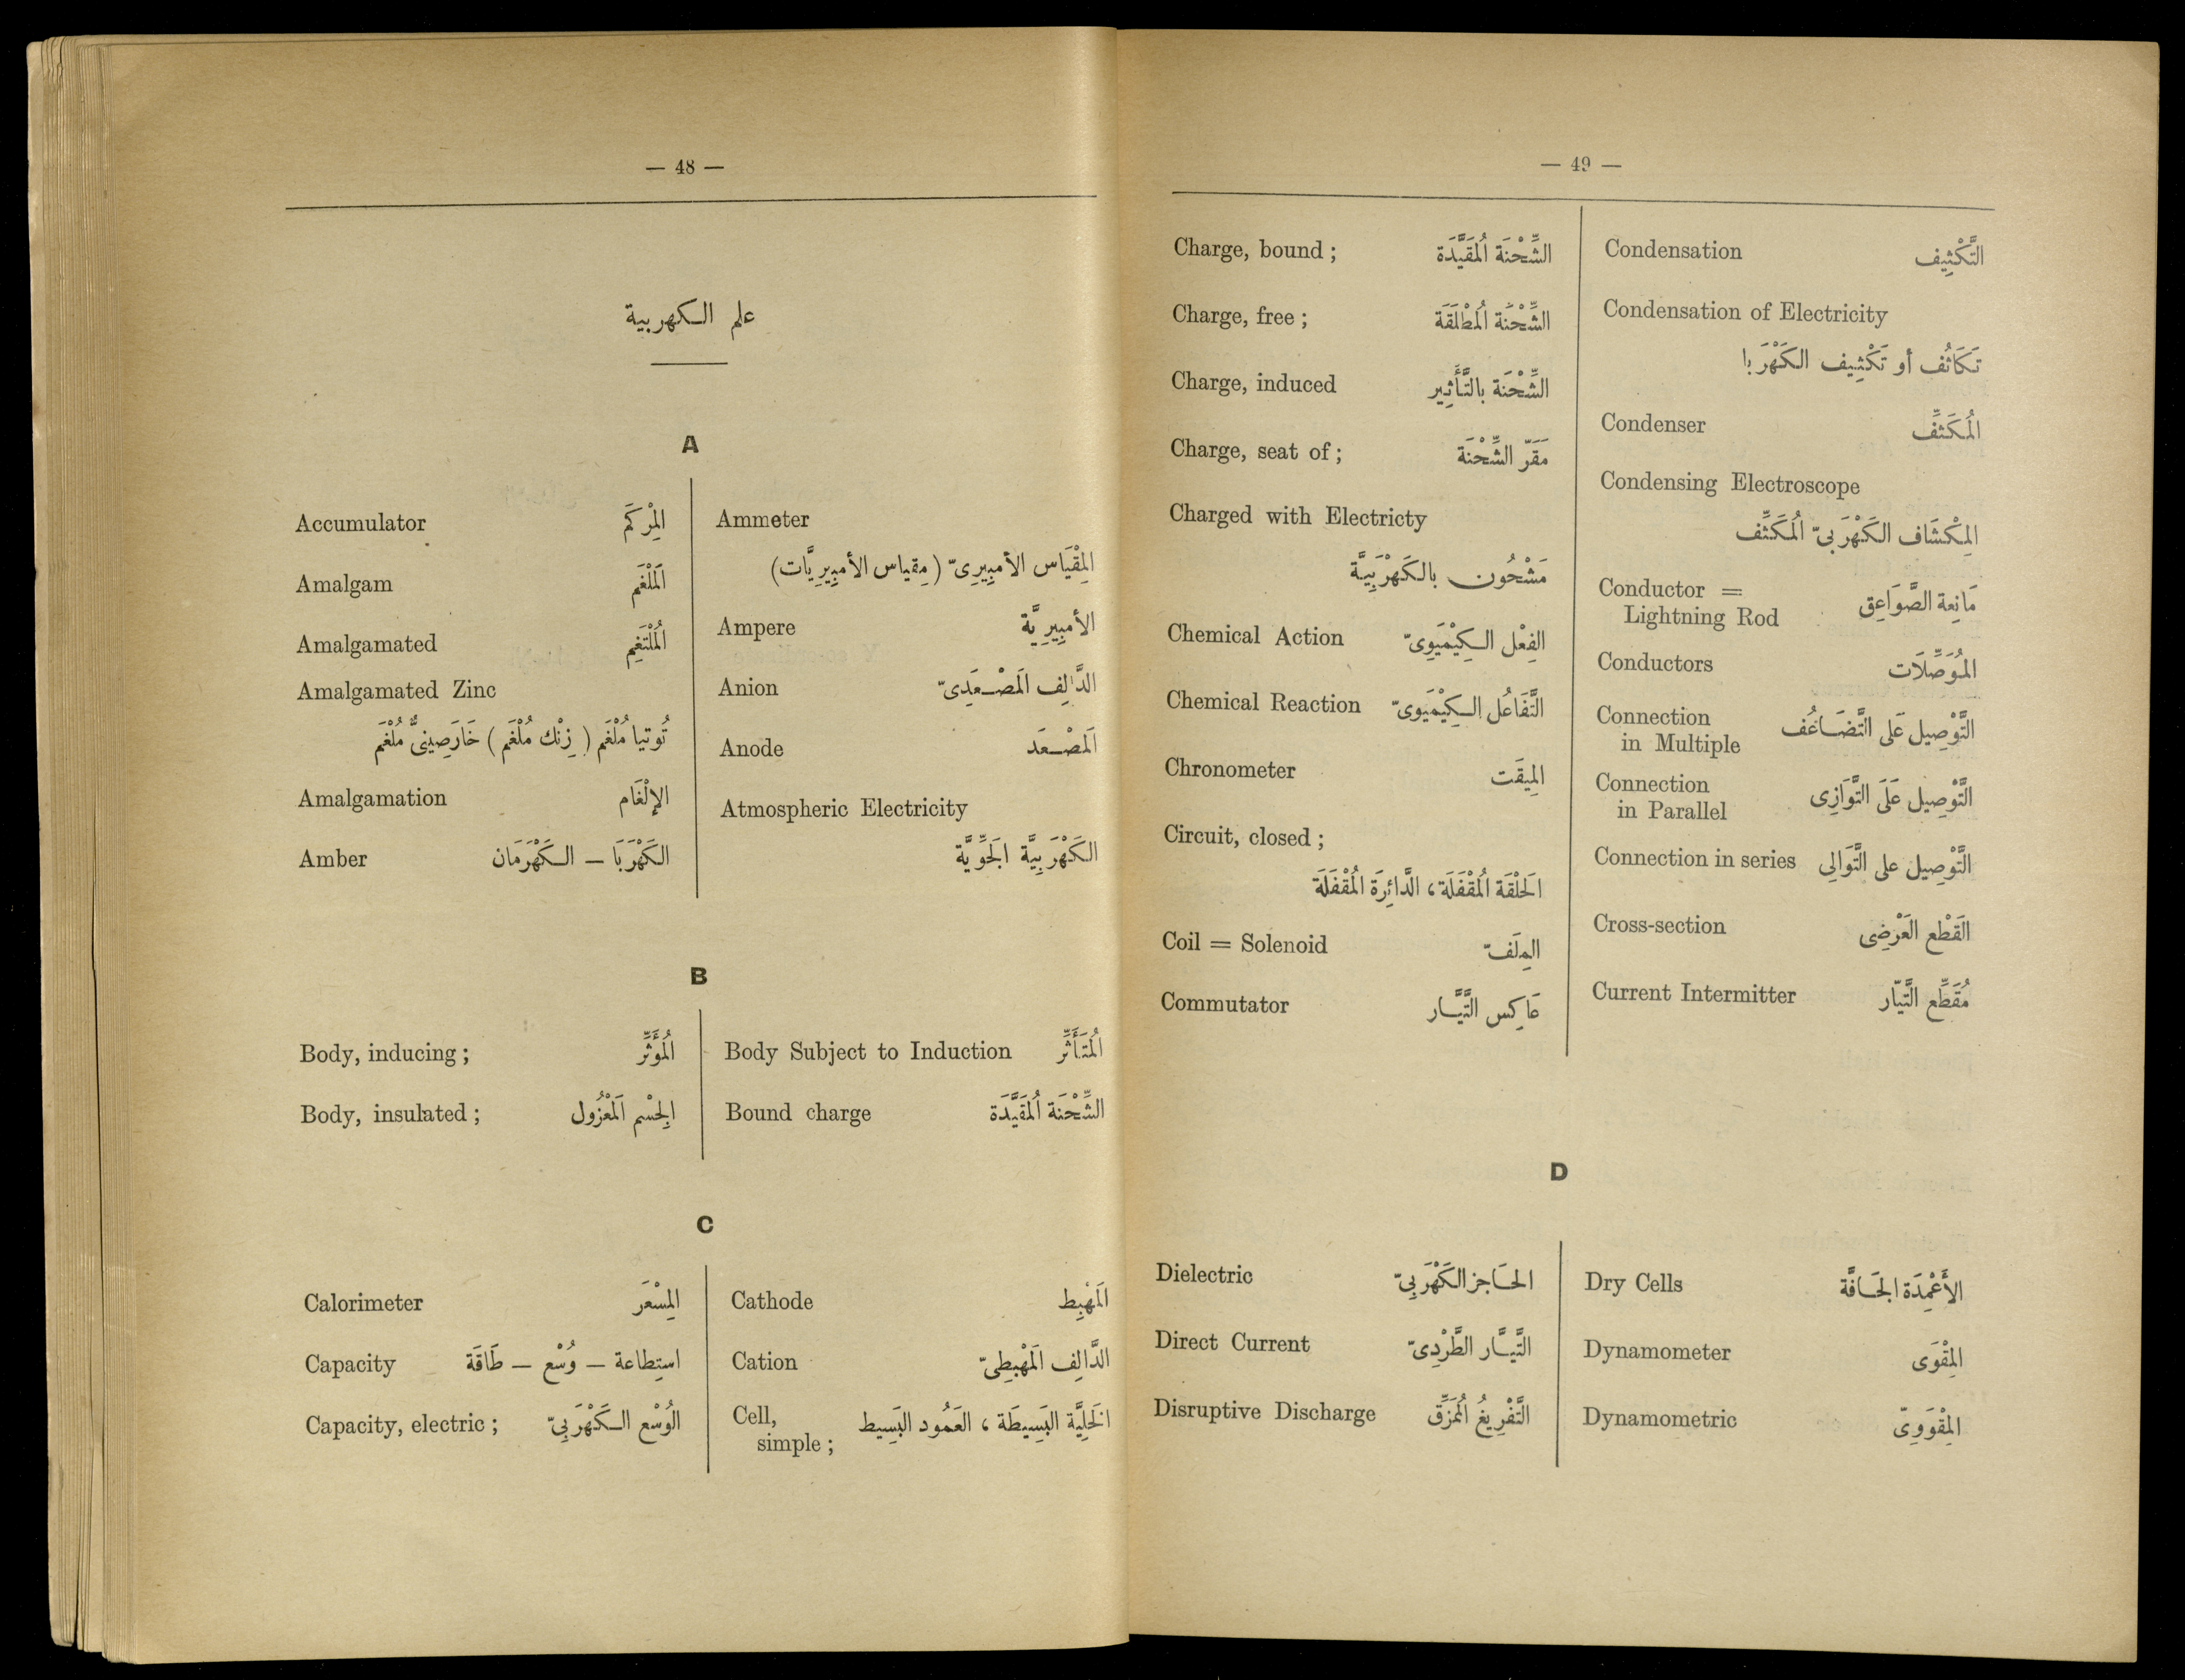 — 48 —
علم الكهربية
A
Accumulator المِرْكَم
Amalgam المَلْغَم
Amalgamated المُلْتَغِم
Amalgamated Zinc
تُوتيا مُلْغَم ( زِنْك مُلْغَم ) خَارَصِينىٌّ مُلْغَم
Amalgamation الإلْغَام
Amber الكَهْرَبَا — الكَهْرَمَان
Ammeter
المِقْيَاس الأمبِيرِىّ ( مِقياس الأمبِيرِيَّات )
Ampere الأمبِيرِيَّة
Anion الدَّالِف المَصْعَدِىّ
Anode المَصْعَد
Atmospheric Electricity
الكَهْرَبِيَّة الجَوِّيَّة
B
Body, inducing ; المُؤَثِّر
Body, insulated ; الجِسْم المَعْزُول
Body Subject to Induction المُتَأَثِّر
Bound charge الشِّحْنَة المُقَيَّدَة
C
Calorimeter المِسْعَر
Capacity استِطاعة — وُسْع — طَاقَة
Capacity, electric ; الوُسْع الكَهْرَبِىّ
Cathode المَهْبِط
Cation الدَّالِف المَهْبِطِىّ
Cell, الخَلِيَّة البَسِيطَة ، العَمُود البَسِيط
simple ;
— 49 —
Charge, bound ; الشِّحْنَة المُقَيَّدَة
Charge, free ; الشِّحْنَة المُطْلَقَة
Charge, induced الشِّحْنَة بالتَّأثِير
Charge, seat of ; مَقَرّ الشِّحْنَة
Charged with Electricty
مَشْحُون بالكَهْرَبِيَّة
Chemical Action الفِعْل الكِيْمَيَوِىّ
Chemical Reaction التَّفَاعُل الكِيْمَيَوىّ
Chronometer المِيقَت
Circuit, closed ;
الحَلْقَة المُقْفَلَة ، الدَّائِرَة المُقْفَلَة
Coil = Solenoid المِلَفّ
Commutator عَاكِس التَّيَّار
Condensation التَّكْثِيف
Condensation of Electricity
تَكَاثُف أو تَكْثِيف الكَهْرَبا
Condenser المُكَثِّف
Condensing Electroscope
المِكْشَاف الكَهْرَبىّ المُكَثِّف
Conductor = مَانِعة الصَّوَاعِق
Lightning Rod
Conductors المُوَصِّلَات
Connection التَّوْصِيل عَلَى التَّضَاعُف
in Multiple
Connection التَّوْصِيل عَلَى التَّوَازِى
in Parallel
Connection in series التَّوْصِيل على التَّوَالِى
Cross-section القَطْع العَرْضِى
Current Intermitter مُقَطِّع التَّيّار
D
Dielectric الحَاجز الكَهْرَبِىّ
Direct Current التَّيَّار الطَّرْدِىّ
Disruptive Discharge التَّفْرِيغُ المُمَزِّق
Dry Cells الأَعْمِدَة الجَافَّة
Dynamometer المِقْوَى
Dynamometric المِقْوَوِىّ